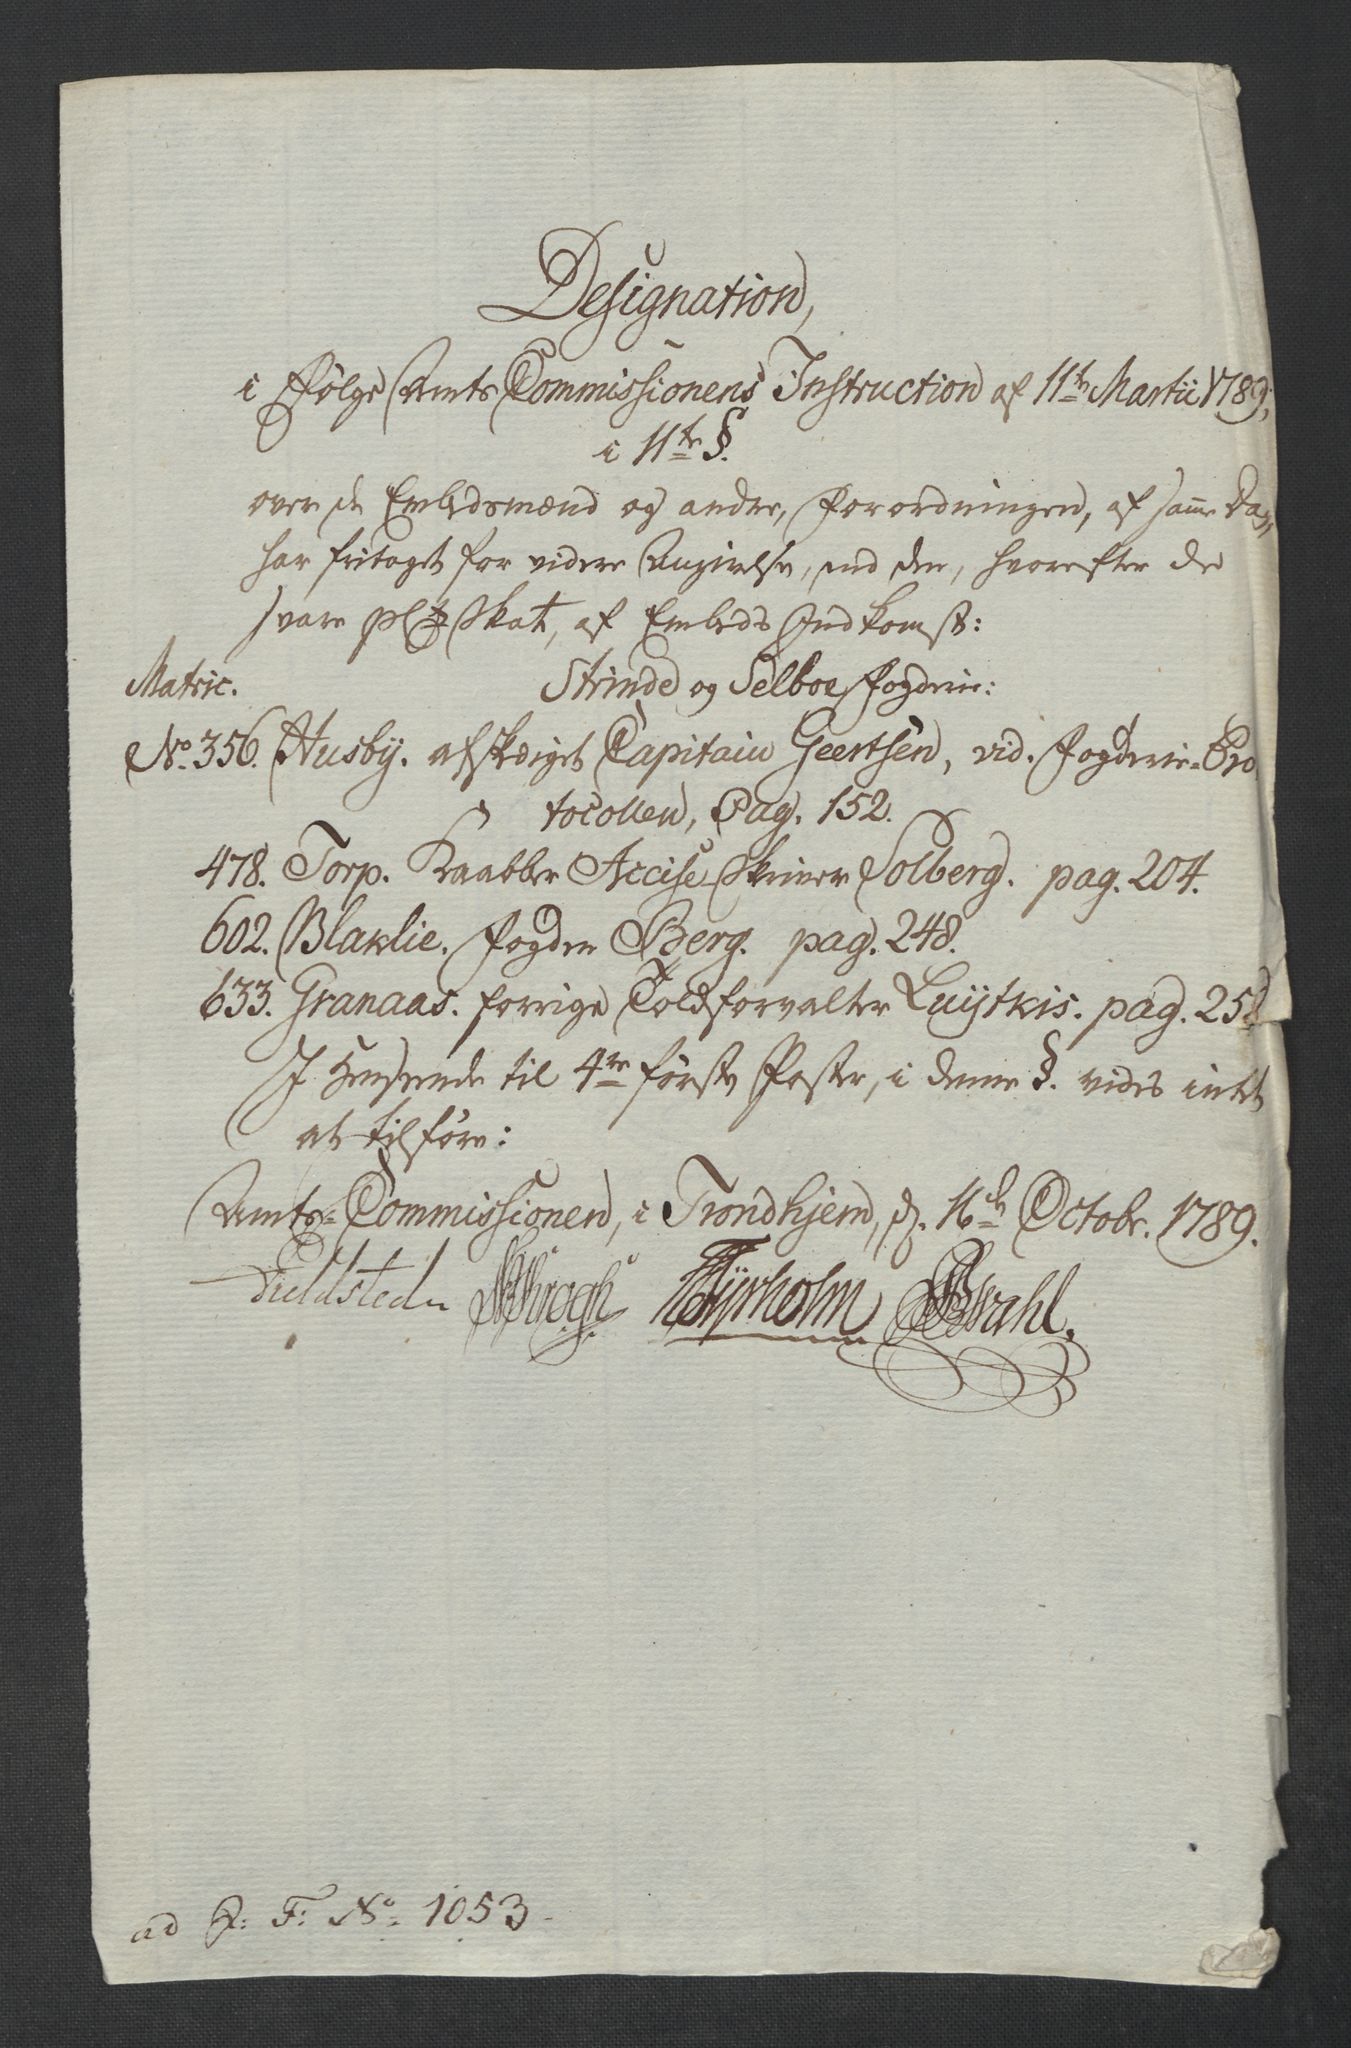 Designation,
i Følge Amts Commissionens Instruction af 11te Martii 1789,
i 11te §.
over de Embedsmænd og andre, Forordningen, af samme Dag,
har fritaget for videre Angivelse, end den, hvorefter de
svare Skat, af Embeds Indkomst:
Matric. Strinde og Selboe Fogderie:
No. 356. Husby. afskediget Capitain Geertsen, vid. Fogderie-Pro
tocollen, Pag. 152.
478. Torp. Kaabber Accise Skriver Solberg. pag. 204.
602. Blaklie. Fogden Berg. pag. 248.
633. Granaas. forrige Toldforvalter Luytkis. pag. 25
I Henseende til 4re første Poster, i denne §. vides intet
at tilføre:
Amts-Commissionen, i Trondhjem, d. 16de Octobr. 1789.
Fieldsted Hyrholm Wahl.
ad R: F: No. 1053